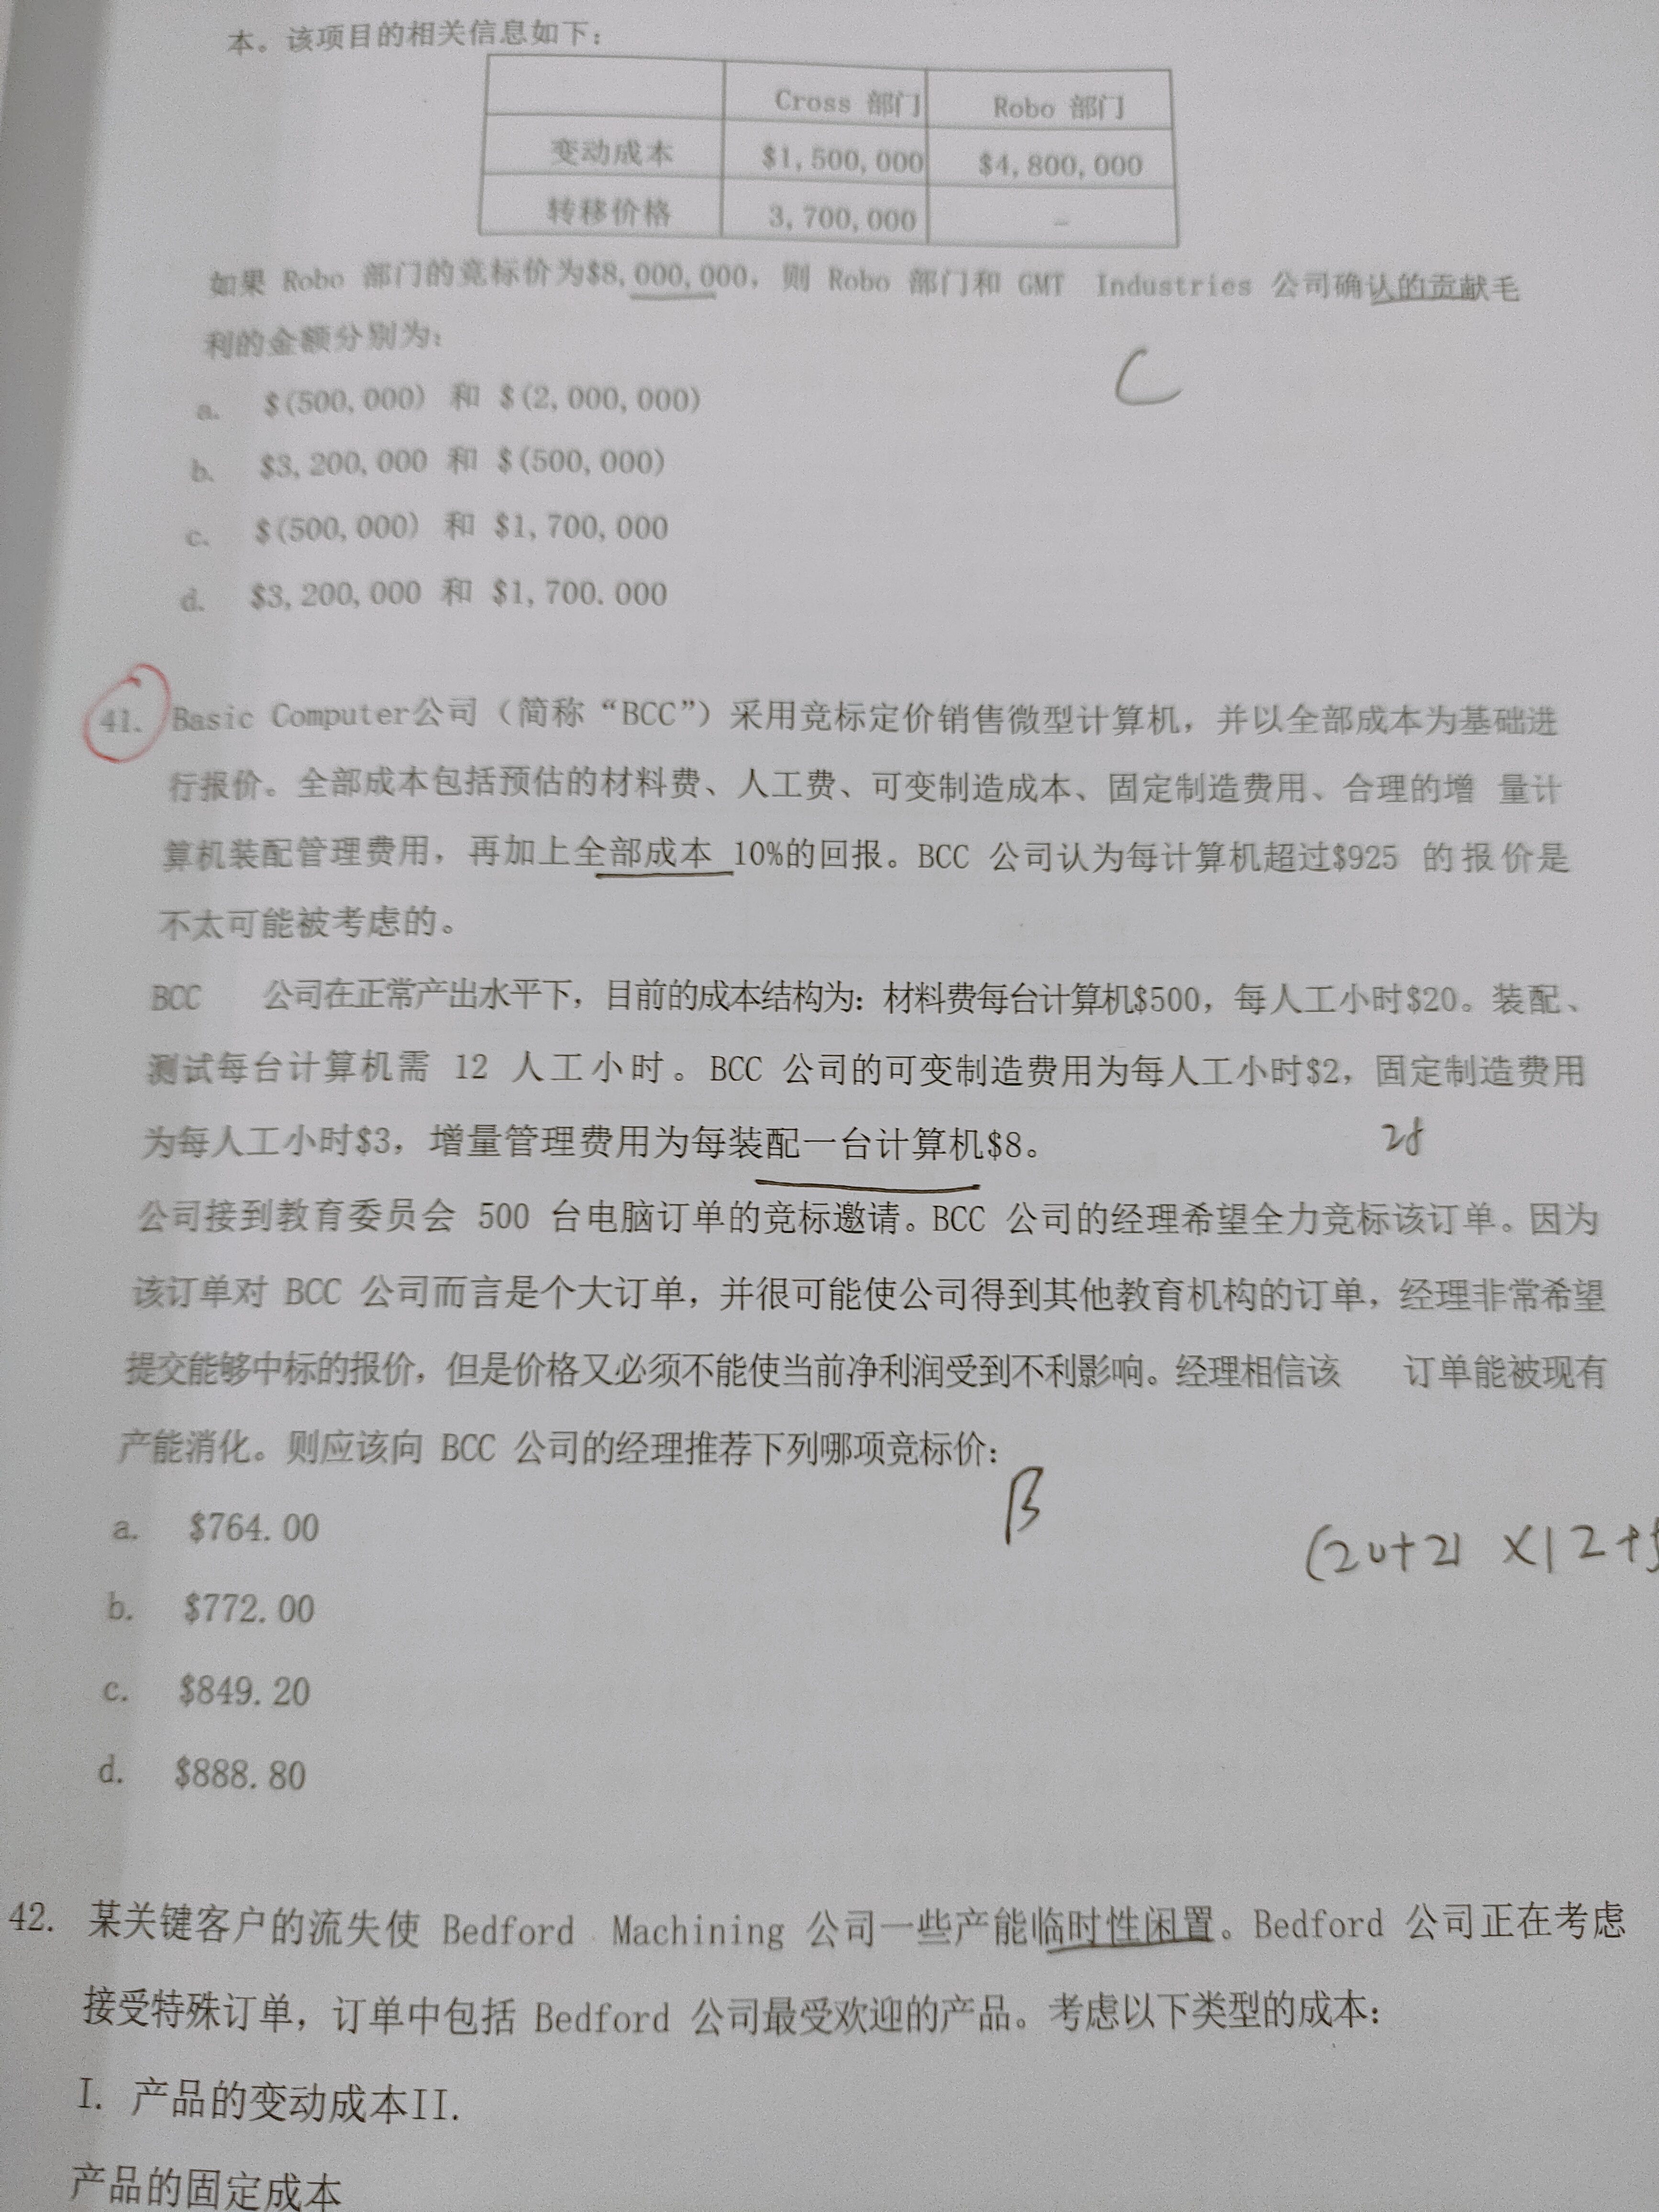 本。该项目的相关信息如下：
Cross 部门 Robo 部门
变动成本 $1,500,000 $4,800,000
转移价格 3,700,000 -
如果 Robo 部门的竞标价为$8,000,000，则 Robo 部门和 GMT Industries 公司确认的贡献毛
利的金额分别为：
C
a. $(500,000) 和 $(2,000,000)
b. $3,200,000 和 $(500,000)
c. $(500,000) 和 $1,700,000
d. $3,200,000 和 $1,700.000
41. Basic Computer公司（简称“BCC”）采用竞标定价销售微型计算机，并以全部成本为基础进
行报价。全部成本包括预估的材料费、人工费、可变制造成本、固定制造费用、合理的增 量计
算机装配管理费用，再加上全部成本 10%的回报。BCC 公司认为每计算机超过$925 的报价是
不太可能被考虑的。
BCC 公司在正常产出水平下，目前的成本结构为：材料费每台计算机$500，每人工小时$20。装配、
测试每台计算机需 12 人工小时。BCC 公司的可变制造费用为每人工小时$2，固定制造费用
为每人工小时$3，增量管理费用为每装配一台计算机$8。
公司接到教育委员会 500 台电脑订单的竞标邀请。BCC 公司的经理希望全力竞标该订单。因为
该订单对 BCC 公司而言是个大订单，并很可能使公司得到其他教育机构的订单，经理非常希望
提交能够中标的报价，但是价格又必须不能使当前净利润受到不利影响。经理相信该 订单能被现有
产能消化。则应该向 BCC 公司的经理推荐下列哪项竞标价：
B
a. $764.00
(20+2) ×12+
b. $772.00
c. $849.20
d. $888.80
42. 某关键客户的流失使 Bedford Machining 公司一些产能临时性闲置。Bedford 公司正在考虑
接受特殊订单，订单中包括 Bedford 公司最受欢迎的产品。考虑以下类型的成本：
I. 产品的变动成本II.
产品的固定成本